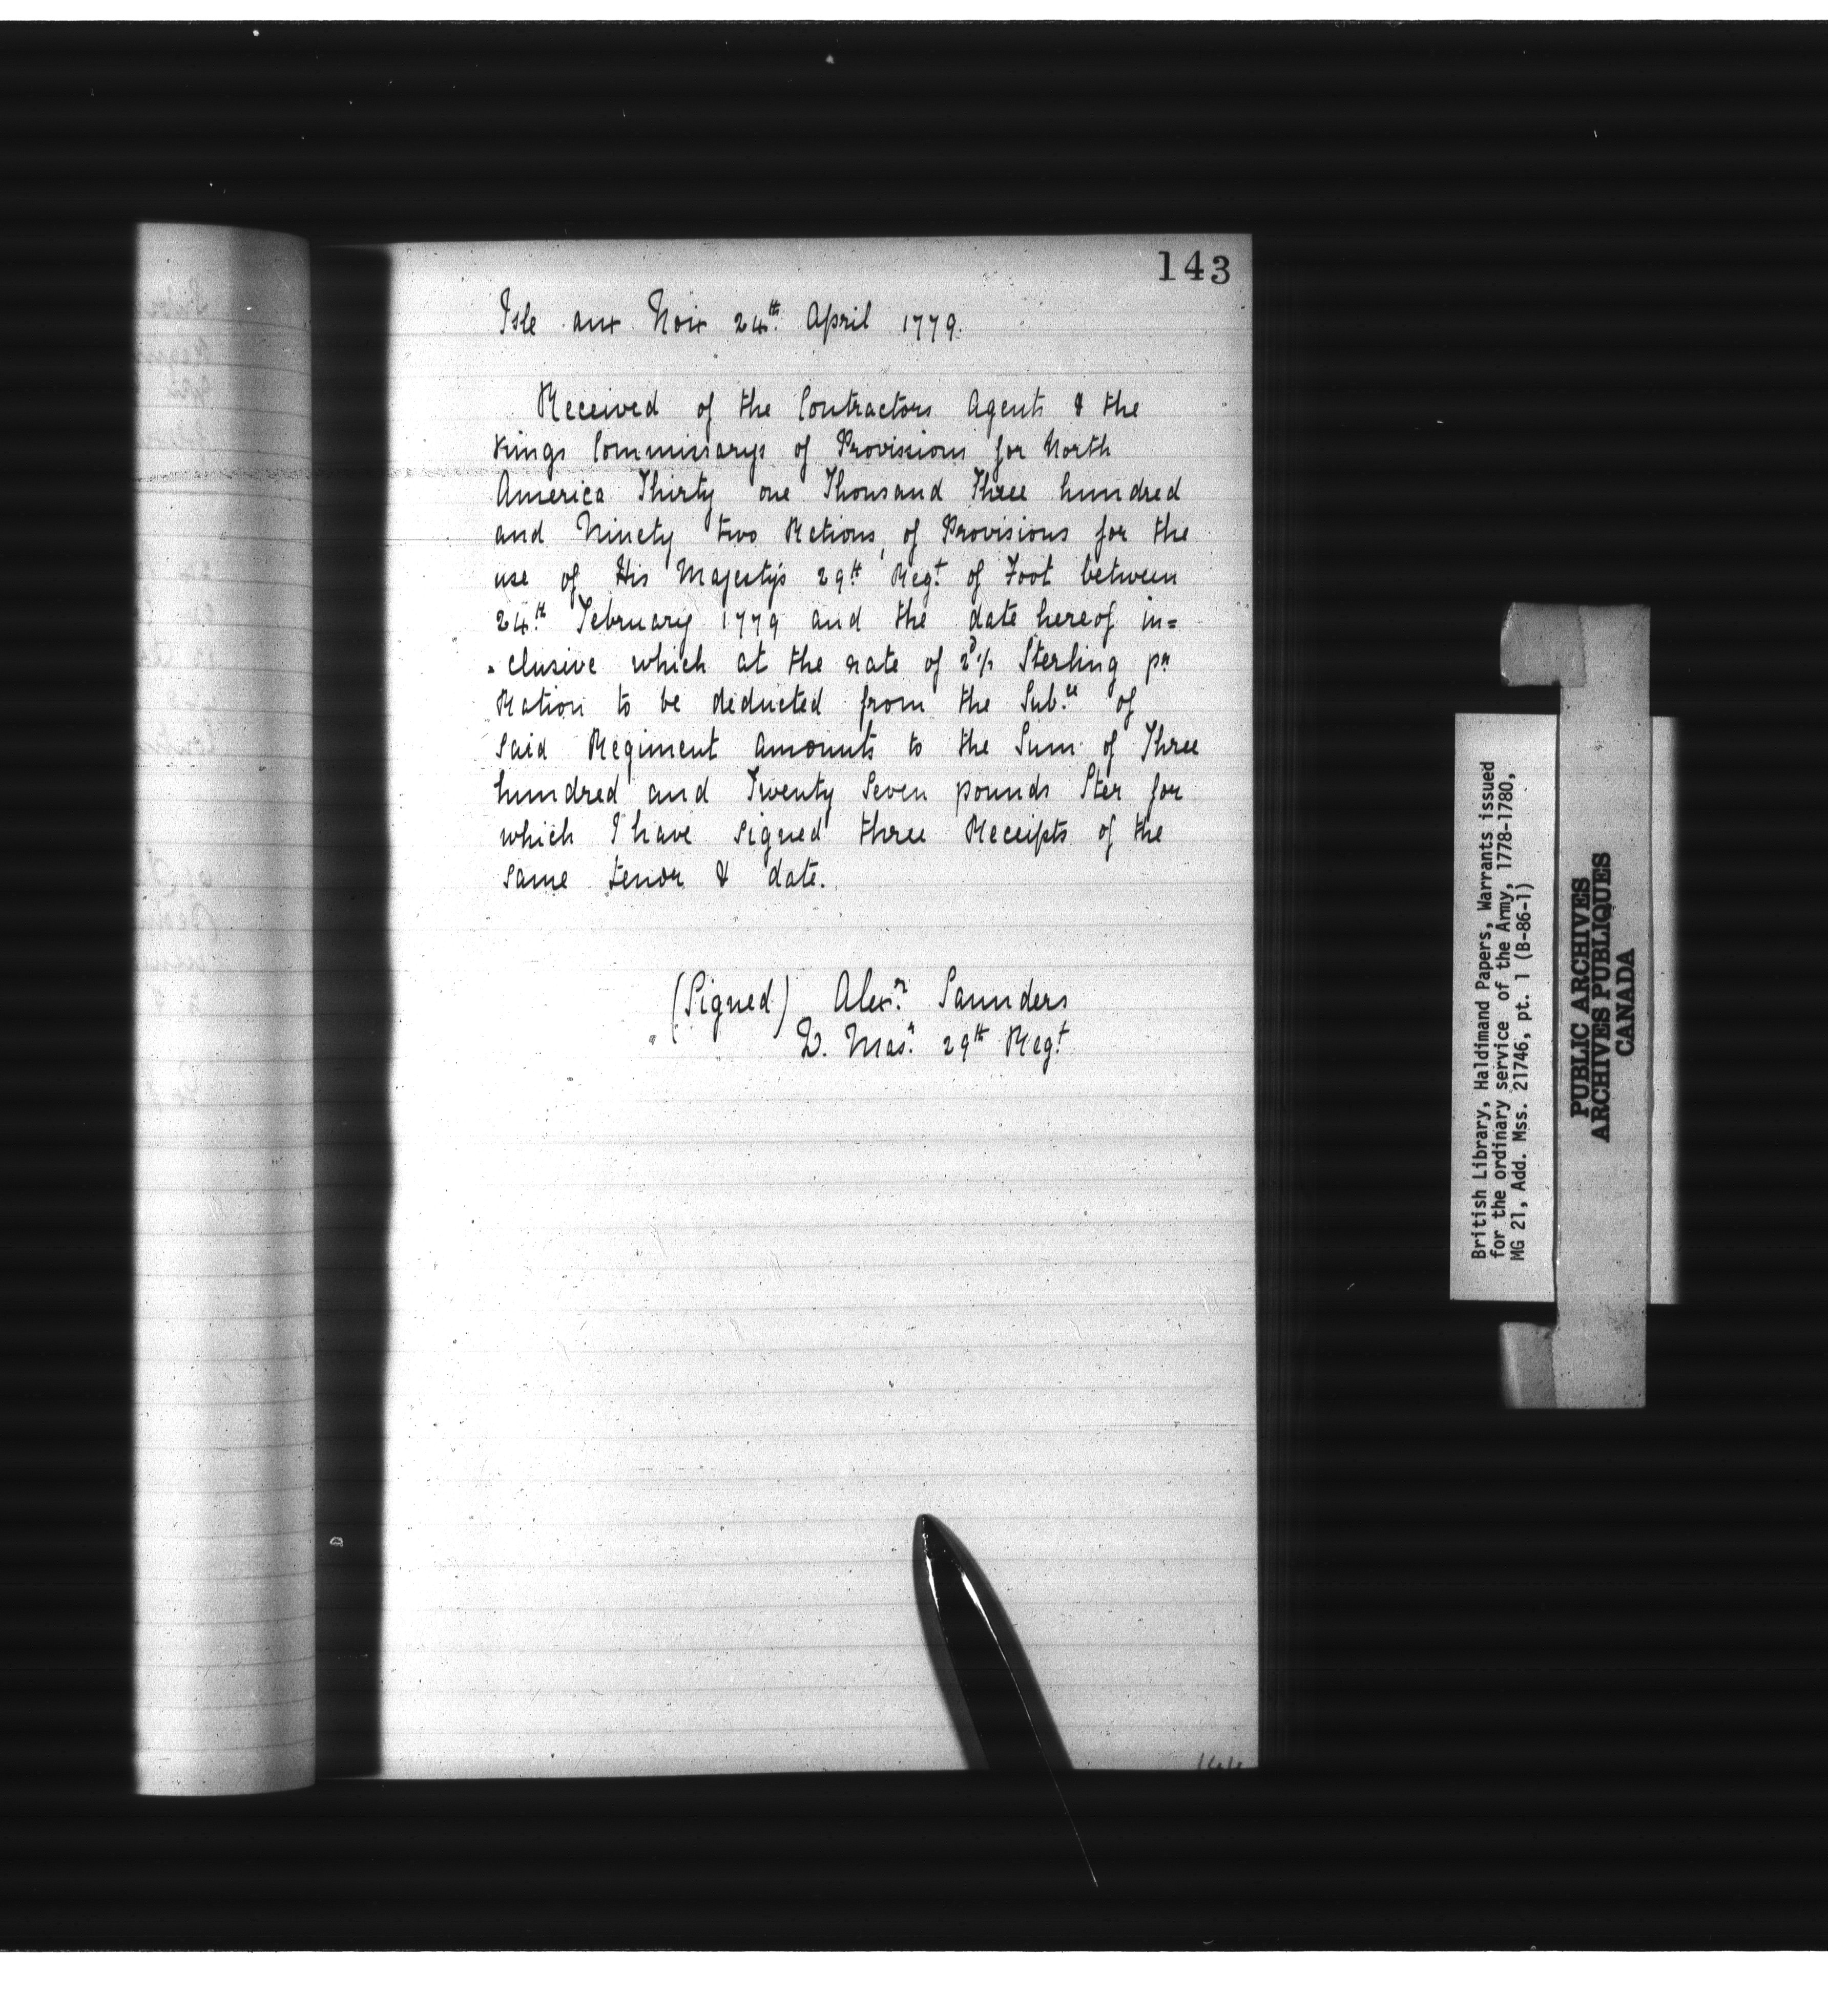 143
Isle aux Noix 24th. April 1779.
Received of the Contractors Agents & the
Kings Commissarys of Provisions for North
America Thirty one Thousand Three hundred
and Ninety two Rations, of Provisions for the
use of His Majesty's 29th Regt. of Foot between
24.th February 1779 and the date hereof in=
clusive which at the rate of 2½ Sterling pr
Ration to be deducted from the Sub.ce of
said Regiment amounts to the Sum of Three
hundred and Twenty Seven pounds Ster for
which I have signed three Receipts of the
same tenor & date.
(Signed) Alexr. Saunders
Q. Masr. 29th Regt.
British Library, Haldimand Papers, Warrants issued
for the ordinary service of the Army, 1778-1780,
MG 21, Add. Mss. 21746, pt. 1 (B-86-1)
PUBLIC ARCHIVES
ARCHIVES PUBLIQUES
CANADA